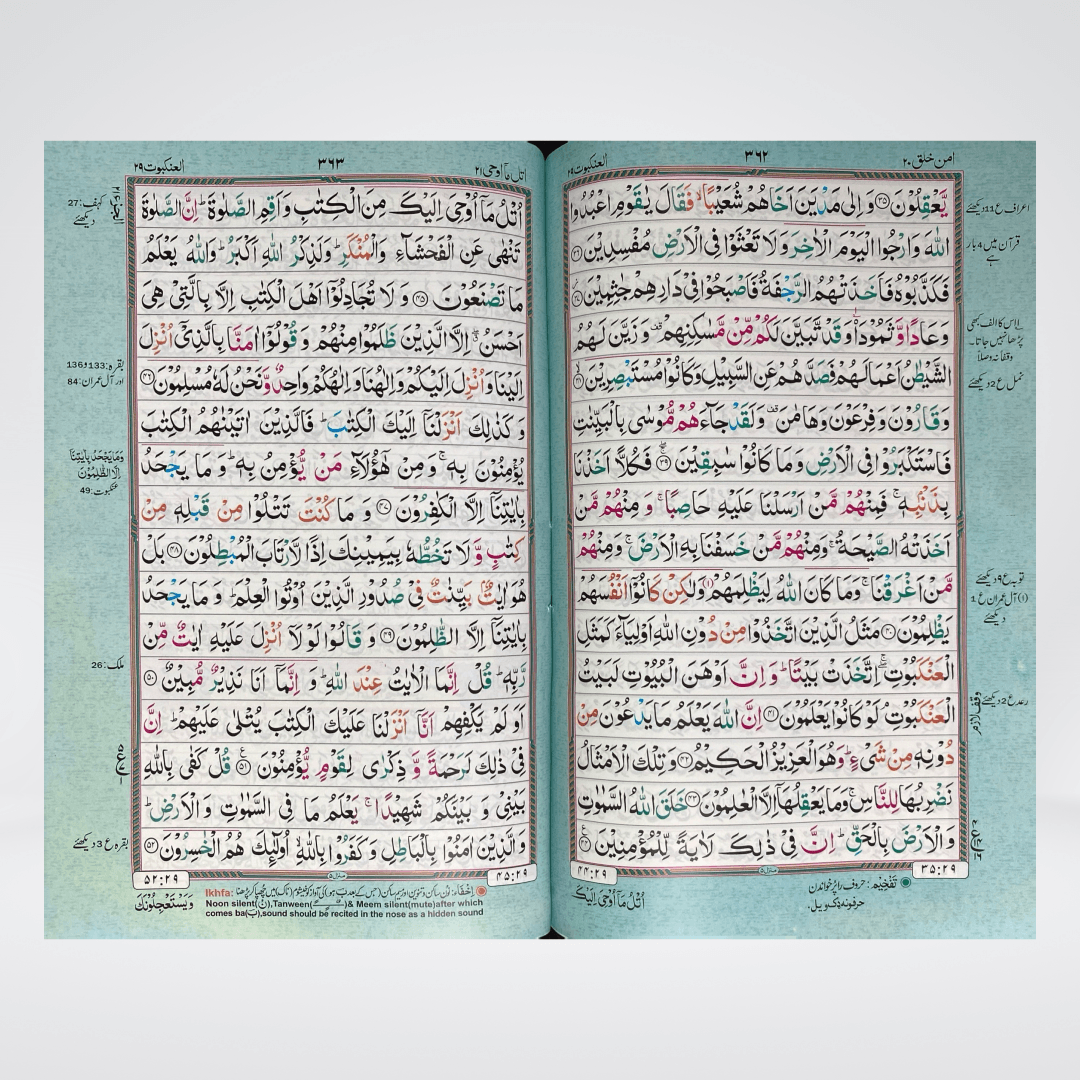 امن خلق ۲۰
۳۶۲
العنكبوت ۲۹
يَّعْقِلُوْنَ ۝۳۵ وَ اِلٰى مَدْيَنَ اَخَاهُمْ شُعَيْبًا ۙ فَقَالَ يٰقَوْمِ اعْبُدُوا
اللّٰهَ وَارْجُوا الْيَوْمَ الْاٰخِرَ وَ لَا تَعْثَوْا فِى الْاَرْضِ مُفْسِدِيْنَ ۝۳۶
فَكَذَّبُوْهُ فَاَخَذَتْهُمُ الرَّجْفَةُ فَاَصْبَحُوْا فِيْ دَارِهِمْ جٰثِمِيْنَ ۝۳۷
وَ عَادًا وَّ ثَمُوْدَا۟ وَ قَدْ تَّبَيَّنَ لَكُمْ مِّنْ مَّسٰكِنِهِمْ ۫ وَ زَيَّنَ لَهُمُ
الشَّيْطٰنُ اَعْمَالَهُمْ فَصَدَّهُمْ عَنِ السَّبِيْلِ وَ كَانُوْا مُسْتَبْصِرِيْنَ ۝۳۸
وَ قَارُوْنَ وَ فِرْعَوْنَ وَ هَامٰنَ ۫ وَ لَقَدْ جَآءَهُمْ مُّوْسٰى بِالْبَيِّنٰتِ
فَاسْتَكْبَرُوْا فِى الْاَرْضِ وَ مَا كَانُوْا سٰبِقِيْنَ ۝۳۹ فَكُلًّا اَخَذْنَا
بِذَنْۢبِهٖ ۚ فَمِنْهُمْ مَّنْ اَرْسَلْنَا عَلَيْهِ حَاصِبًا ۚ وَ مِنْهُمْ مَّنْ
اَخَذَتْهُ الصَّيْحَةُ ۚ وَ مِنْهُمْ مَّنْ خَسَفْنَا بِهِ الْاَرْضَ ۚ وَ مِنْهُمْ
مَّنْ اَغْرَقْنَا ۚ وَ مَا كَانَ اللّٰهُ لِيَظْلِمَهُمْ وَ لٰكِنْ كَانُوْۤا اَنْفُسَهُمْ
يَظْلِمُوْنَ ۝۴۰ مَثَلُ الَّذِيْنَ اتَّخَذُوْا مِنْ دُوْنِ اللّٰهِ اَوْلِيَآءَ كَمَثَلِ
الْعَنْكَبُوْتِ ۚ اِتَّخَذَتْ بَيْتًا ؕ وَ اِنَّ اَوْهَنَ الْبُيُوْتِ لَبَيْتُ
الْعَنْكَبُوْتِ ۘ لَوْ كَانُوْا يَعْلَمُوْنَ ۝۴۱ اِنَّ اللّٰهَ يَعْلَمُ مَا يَدْعُوْنَ مِنْ
دُوْنِهٖ مِنْ شَيْءٍ ؕ وَ هُوَ الْعَزِيْزُ الْحَكِيْمُ ۝۴۲ وَ تِلْكَ الْاَمْثَالُ
نَضْرِبُهَا لِلنَّاسِ ۚ وَ مَا يَعْقِلُهَاۤ اِلَّا الْعٰلِمُوْنَ ۝۴۳ خَلَقَ اللّٰهُ السَّمٰوٰتِ
وَ الْاَرْضَ بِالْحَقِّ ؕ اِنَّ فِيْ ذٰلِكَ لَاٰيَةً لِّلْمُؤْمِنِيْنَ ۝۴۴
۳۵:۲۹
منزل ۵
۴۴:۲۹
تَفْخِیْم: حروف را پُر خواندن
اُتْلُ مَاۤ اُوْحِيَ اِلَيْكَ
اعراف ع 11 دیکھئے
قرآن میں 4 بار
ہے
اس کا الف بھی
پڑھا نہیں جاتا۔
وقفا نہ وصلاً
نمل ع 2 دیکھئے
توبہ ع ۹ دیکھئے
(۱) آل عمران ع 1
دیکھئے
رعد ع 2 دیکھئے
وقف لازم
اتل ما اوحی ۲۱
۳۶۳
العنكبوت ۲۹
اُتْلُ مَاۤ اُوْحِيَ اِلَيْكَ مِنَ الْكِتٰبِ وَ اَقِمِ الصَّلٰوةَ ؕ اِنَّ الصَّلٰوةَ
تَنْهٰى عَنِ الْفَحْشَآءِ وَ الْمُنْكَرِ ؕ وَ لَذِكْرُ اللّٰهِ اَكْبَرُ ؕ وَ اللّٰهُ يَعْلَمُ
مَا تَصْنَعُوْنَ ۝۴۵ وَ لَا تُجَادِلُوْۤا اَهْلَ الْكِتٰبِ اِلَّا بِالَّتِيْ هِيَ
اَحْسَنُ ۖ اِلَّا الَّذِيْنَ ظَلَمُوْا مِنْهُمْ وَ قُوْلُوْۤا اٰمَنَّا بِالَّذِيْۤ اُنْزِلَ
اِلَيْنَا وَ اُنْزِلَ اِلَيْكُمْ وَ اِلٰهُنَا وَ اِلٰهُكُمْ وَاحِدٌ وَّ نَحْنُ لَهٗ مُسْلِمُوْنَ ۝۴۶
وَ كَذٰلِكَ اَنْزَلْنَاۤ اِلَيْكَ الْكِتٰبَ ؕ فَالَّذِيْنَ اٰتَيْنٰهُمُ الْكِتٰبَ
يُؤْمِنُوْنَ بِهٖ ۚ وَ مِنْ هٰۤؤُلَآءِ مَنْ يُّؤْمِنُ بِهٖ ؕ وَ مَا يَجْحَدُ
بِاٰيٰتِنَاۤ اِلَّا الْكٰفِرُوْنَ ۝۴۷ وَ مَا كُنْتَ تَتْلُوْا مِنْ قَبْلِهٖ مِنْ
كِتٰبٍ وَّ لَا تَخُطُّهٗ بِيَمِيْنِكَ اِذًا لَّارْتَابَ الْمُبْطِلُوْنَ ۝۴۸ بَلْ
هُوَ اٰيٰتٌۢ بَيِّنٰتٌ فِيْ صُدُوْرِ الَّذِيْنَ اُوْتُوا الْعِلْمَ ؕ وَ مَا يَجْحَدُ
بِاٰيٰتِنَاۤ اِلَّا الظّٰلِمُوْنَ ۝۴۹ وَ قَالُوْا لَوْ لَاۤ اُنْزِلَ عَلَيْهِ اٰيٰتٌ مِّنْ
رَّبِّهٖ ؕ قُلْ اِنَّمَا الْاٰيٰتُ عِنْدَ اللّٰهِ ؕ وَ اِنَّمَاۤ اَنَا نَذِيْرٌ مُّبِيْنٌ ۝۵۰
اَوَ لَمْ يَكْفِهِمْ اَنَّاۤ اَنْزَلْنَا عَلَيْكَ الْكِتٰبَ يُتْلٰى عَلَيْهِمْ ؕ اِنَّ
فِيْ ذٰلِكَ لَرَحْمَةً وَّ ذِكْرٰى لِقَوْمٍ يُّؤْمِنُوْنَ ۝۵۱ قُلْ كَفٰى بِاللّٰهِ
بَيْنِيْ وَ بَيْنَكُمْ شَهِيْدًا ۚ يَعْلَمُ مَا فِى السَّمٰوٰتِ وَ الْاَرْضِ ؕ
وَ الَّذِيْنَ اٰمَنُوْا بِالْبَاطِلِ وَ كَفَرُوْا بِاللّٰهِ ۙ اُولٰٓئِكَ هُمُ الْخٰسِرُوْنَ ۝۵۲
۴۵:۲۹
منزل ۵
۵۲:۲۹
Ikhfa:
Noon silent(نْ),Tanween(ـًـٍـٌ)& Meem silent(mute)after which
comes ba(ب),sound should be recited in the nose as a hidden sound
وَ يَسْتَعْجِلُوْنَكَ
کہف: 27
دیکھئے
بقرہ: 133 و 136
اور آل عمران: 84
وَمَا يَجْحَدُ بِاٰيٰتِنَاۤ
اِلَّا الظّٰلِمُوْنَ
عنکبوت: 49
ملک: 26
بقرہ ع 3 دیکھئے